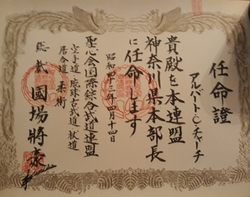 任命證
アルバートCチャーチ
貴殿を本連盟
神奈川県本部長
に任命します
昭和四十 年 月十四日
聖心会国際総合武道連盟
空手道 琉球古武道 杖道
居合道 柔術
総裁 國場将豪